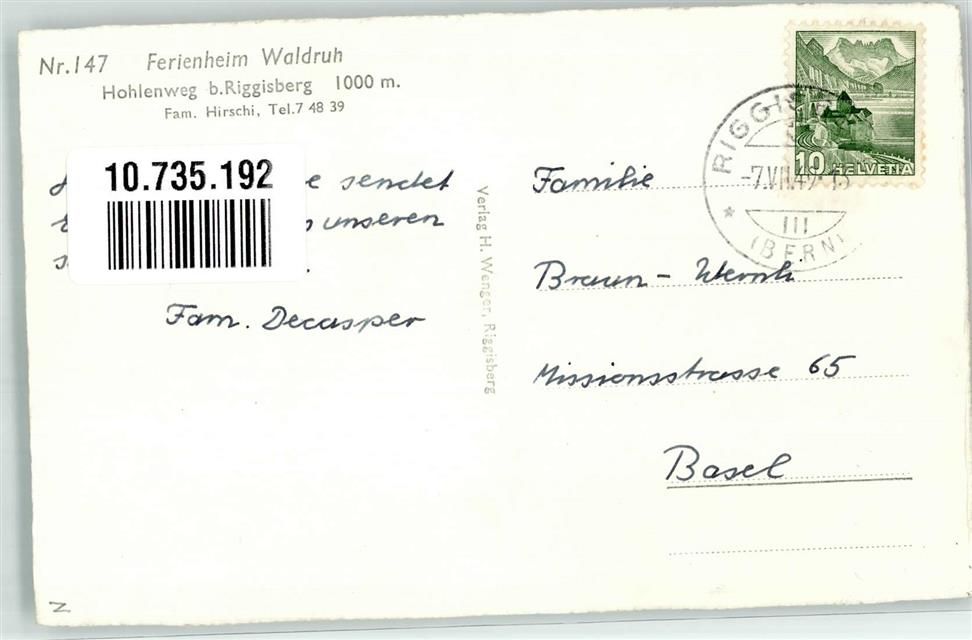 Nr.147 Ferienheim Waldruh
Hohlenweg b.Riggisberg 1000 m.
Fam. Hirschi, Tel.7 48 39
10.735.192
e sendet
unseren
Fam. Decasper
Verlag H. Wenger, Riggisberg
RIGGIS
-7.VII.49-15
III
(BERN)
10 HELVETIA
Familie
Braun - Wernli
Missionsstrasse 65
Basel
N